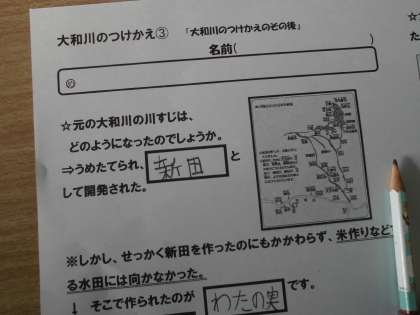 大和川のつけかえ③ 「大和川のつけかえのその後」
名前( )
め
☆元の大和川の川すじは、
どのようになったのでしょうか。
⇒うめたてられ、新田と
して開発された。
※しかし、せっかく新田を作ったのにもかかわらず、米作りなど
る水田には向かなかった。
↓ そこで作られたのが わたの実 です。